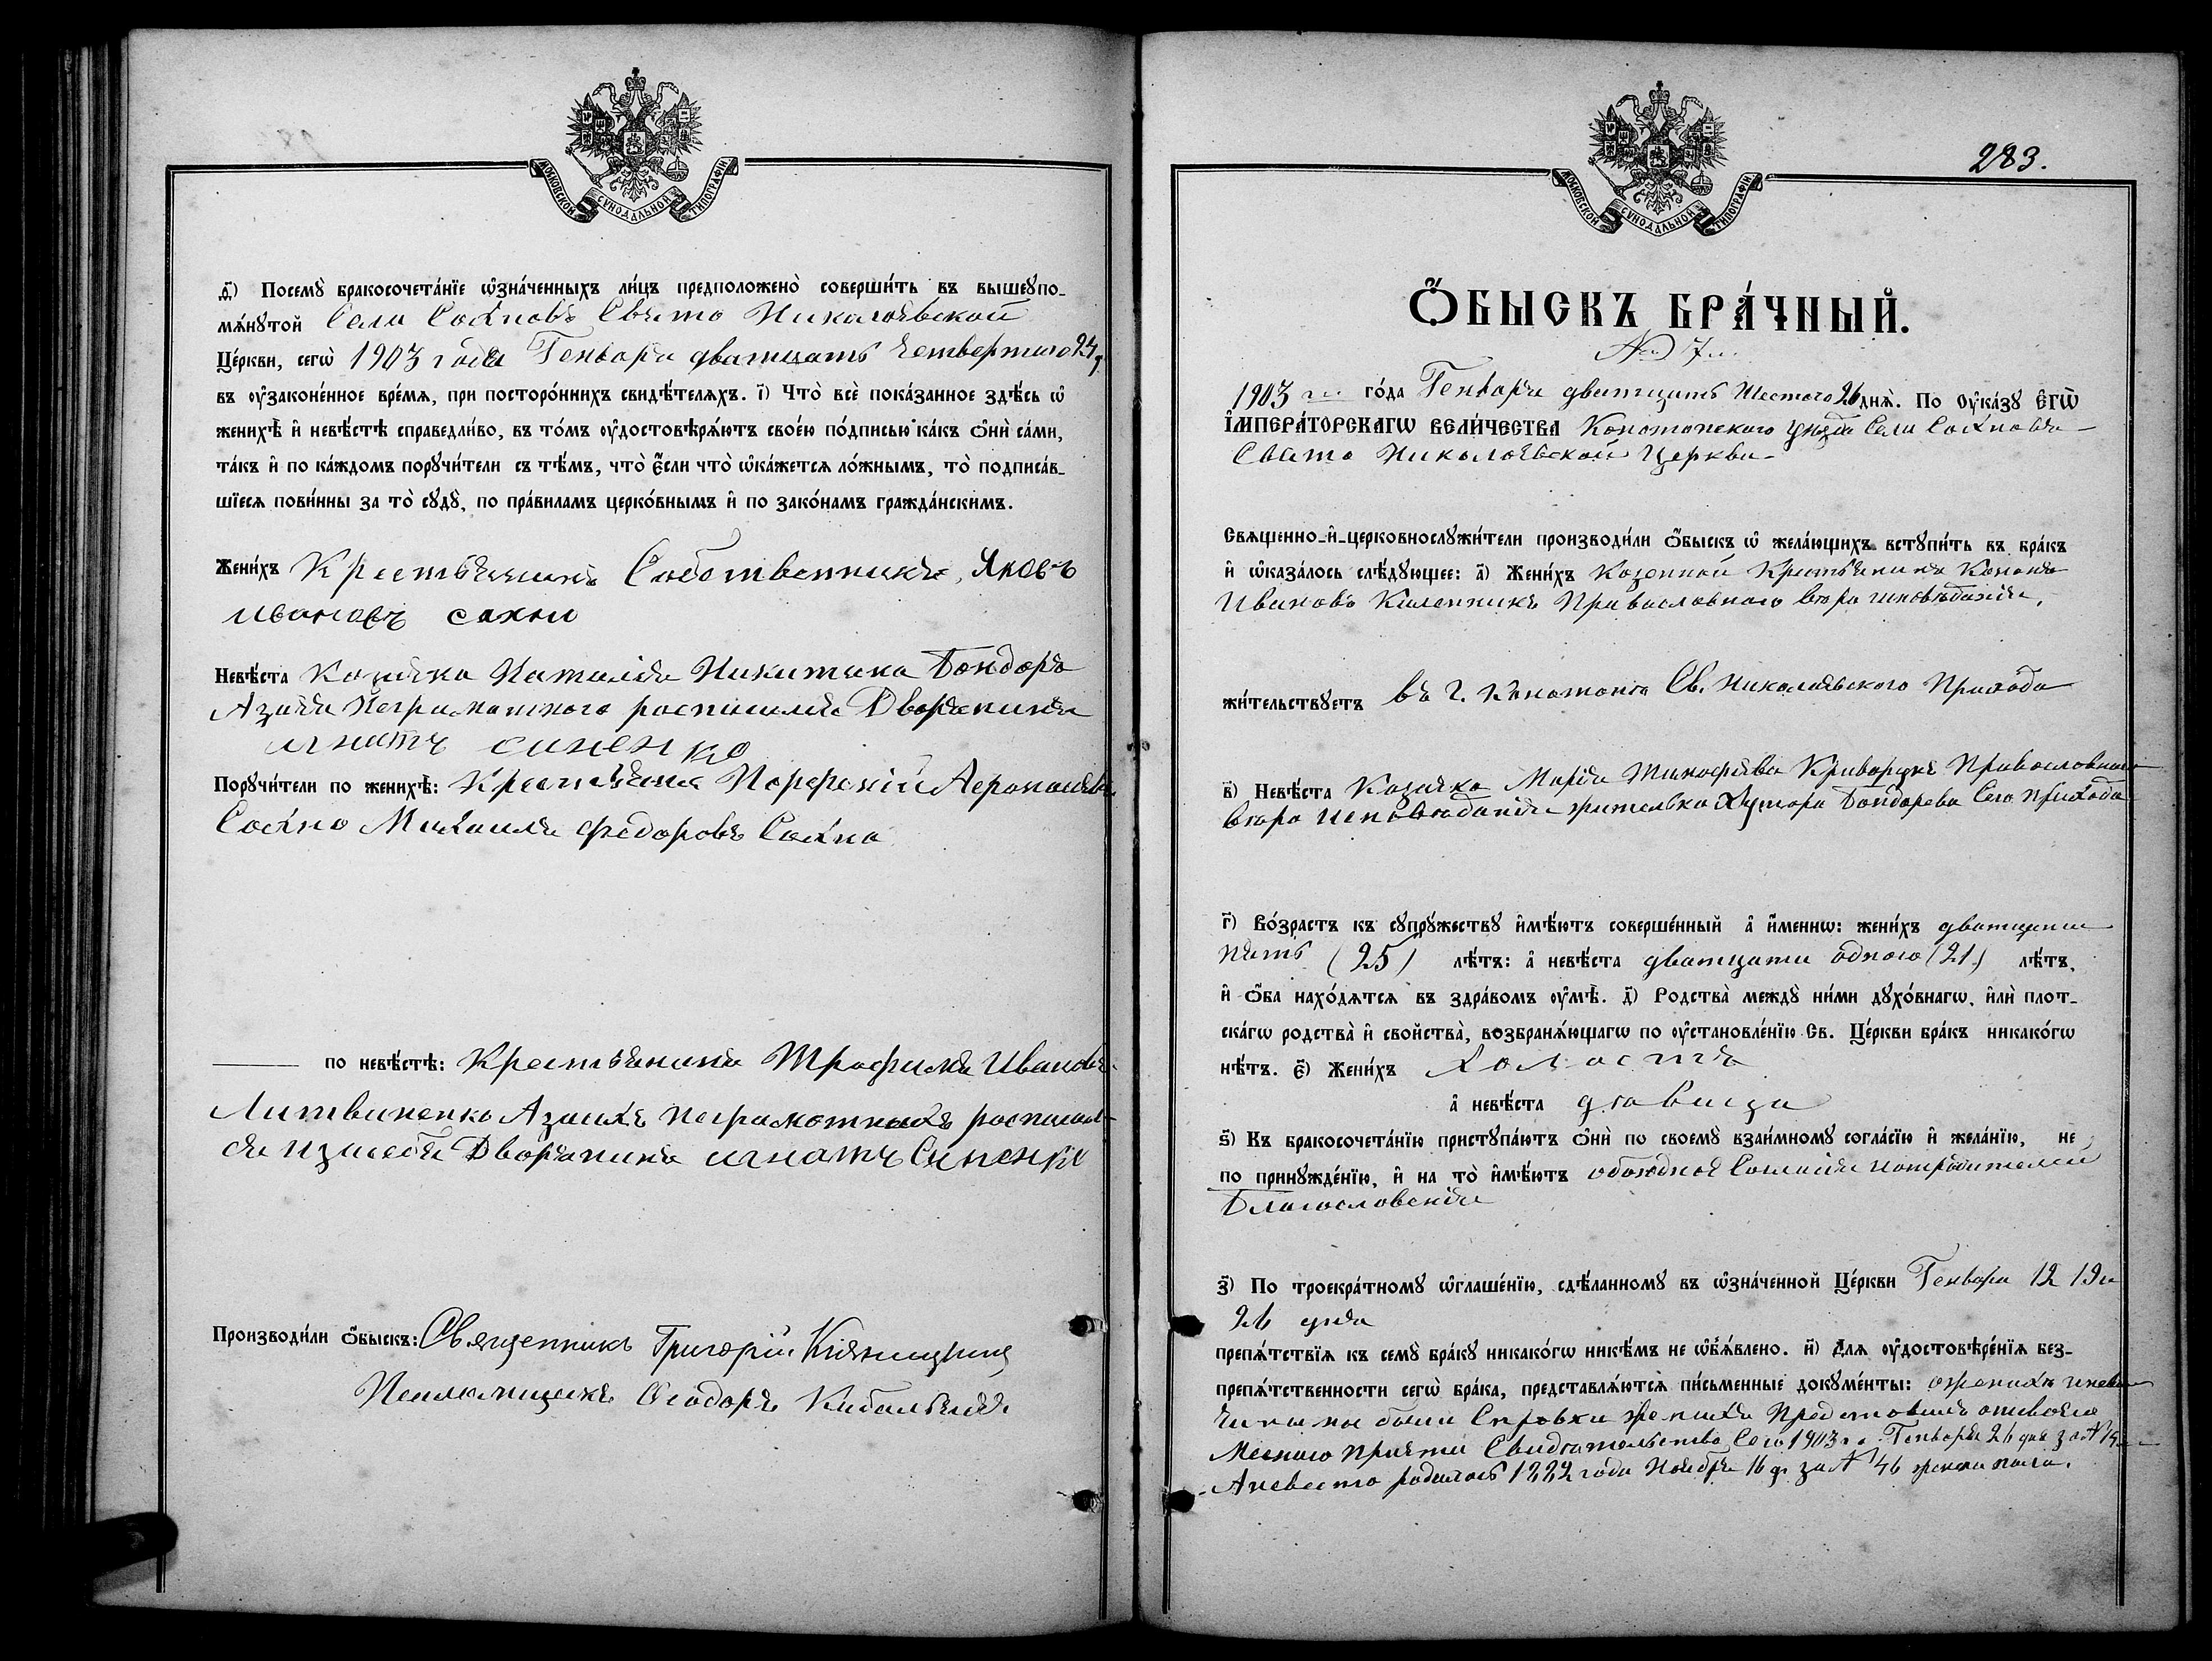 МОСКОВСКОЙ СѴНОДАЛЬНОЙ ТИПОГРАФІИ
д҃і) Посемꙋ̀ бракосочета́нїе ѡ҆зна́ченныхъ ли́цъ предположено̀ соверши́ть въ вышеꙋпо-
мѧ́нꙋтой Села Сахновъ Свято Николаевской
Це́ркви, сегѡ̀ 1903 года Генваря дватцать Четвертого 24
въ ᲂу҆законе́нное вре́мѧ, при посторо́ннихъ свидѣ́телѧхъ. і҃) Что̀ всѐ пока́занное здѣ́сь ѡ҆
женихѣ̀ и҆ невѣ́стѣ справедли́во, въ то́мъ ᲂу҆достовѣрѧ́ютъ свое́ю по́дписью ка́къ ѻ҆нѝ са́ми,
та́къ и҆ по ка́ждомъ порꙋчи́тели съ тѣ́мъ, что̀ є҆́сли что̀ ѡ҆ка́жетсѧ ло́жнымъ, то̀ подписа́в-
шїесѧ пови́нны за то̀ сꙋдꙋ̀, по пра́виламъ церко́внымъ и҆ по зако́намъ гражда́нскимъ.
Жени́хъ Крестьянинъ Собственникъ, Яковъ
Ивановъ сахно
Невѣ́ста Козачка Наталія Никитина Бондарь
Азанея Неграмотного росписался Дворянинъ
игнатъ синенко
Порꙋчи́тели по женихѣ̀: Крестьяне
Сахно Михаилъ Федоровъ Сахно
по невѣ́стѣ: Крестьянинъ Трофимъ Ивановъ
Литвиненко Азаихъ неграмотныхъ росписал-
ся Дворянинъ игнатъ Синенко
Производи́ли ѻ҆́быскъ: Священникъ Григорій
Псаломщикъ Ѳеодоръ
283.
МОСКОВСКОЙ СѴНОДАЛЬНОЙ ТИПОГРАФІИ
Ѻ҆́БЫСКЪ БРА́ЧНЫЙ.
№ 7
1903 го́да Генваря дватцать Шестого 26 днѧ̀. По Оу҆ка́зꙋ Є҆ГѠ̀
І҆МПЕРА́ТОРСКАГѠ ВЕЛИ́ЧЕСТВА Конотопского уезда Села Сахновъ
Свято Николаевской Церкви
Свѧщенно-и҆-церковнослꙋжи́тели производи́ли ѻ҆́быскъ ѡ҆ жела́ющихъ встꙋпи́ть въ бра́къ
и҆ ѡ҆каза́лось слѣ́дꙋющее: а҃) Жени́хъ Казенной Крестьянинъ Кононъ
Ивановъ Православного вероисповѣданія,
жи́тельствꙋетъ въ г. Конотопѣ Св. Николаевского Прихода
в҃) Невѣ́ста Козачка Марія Тимофѣева Православного
вероисповѣданія жителька Хутора Бондарева Сего прихода
г҃) Во́зрастъ къ сꙋпрꙋ́жествꙋ и҆мѣ́ютъ соверше́нный а҆ и҆́меннѡ: жени́хъ дватцати
пять (25) лѣ́тъ: а҆ невѣ́ста дватцати одного (21) лѣ́тъ,
и҆ ѻ҆́ба нахо́дѧтсѧ въ здра́вомъ ᲂу҆мѣ̀. д҃) Родства̀ междꙋ̀ ни́ми дꙋхо́внагѡ, и҆лѝ плот-
ска́гѡ родства̀ и҆ свойства̀, возбранѧ́ющагѡ по ᲂу҆становле́нїю Св. Це́ркви бра́къ никако́гѡ
нѣ́тъ. є҃) Жени́хъ холостъ
а҆ невѣ́ста девица
ѕ҃) Къ бракосочета́нїю пристꙋпа́ютъ ѻ҆нѝ по своемꙋ̀ взаи́мномꙋ согла́сїю и҆ жела́нїю, не
по принꙋжде́нїю, и҆ на то̀ и҆мѣ́ютъ обоюдное Согласія родителей
Благословенія
з҃) По троекра́тномꙋ ѡ҆глаше́нїю, сдѣ́ланномꙋ въ ѡ҆зна́ченной Це́ркви Генваря 12 19 и
26 дня
препѧ́тствїѧ къ семꙋ̀ бра́кꙋ никако́гѡ никѣ́мъ не ѡ҆б̾ѧ́влено. и҃) Длѧ ᲂу҆достовѣре́нїѧ без-
препѧ́тственности сегѡ̀ бра́ка, представлѧ́ютсѧ пи́сьменные докꙋме́нты:
были Справки женихъ Представилъ
Свидетельство Сего 1903 г. Генваря 26 дня за №
Аневеста родилась 1882 года Ноября 16 д. за № 46